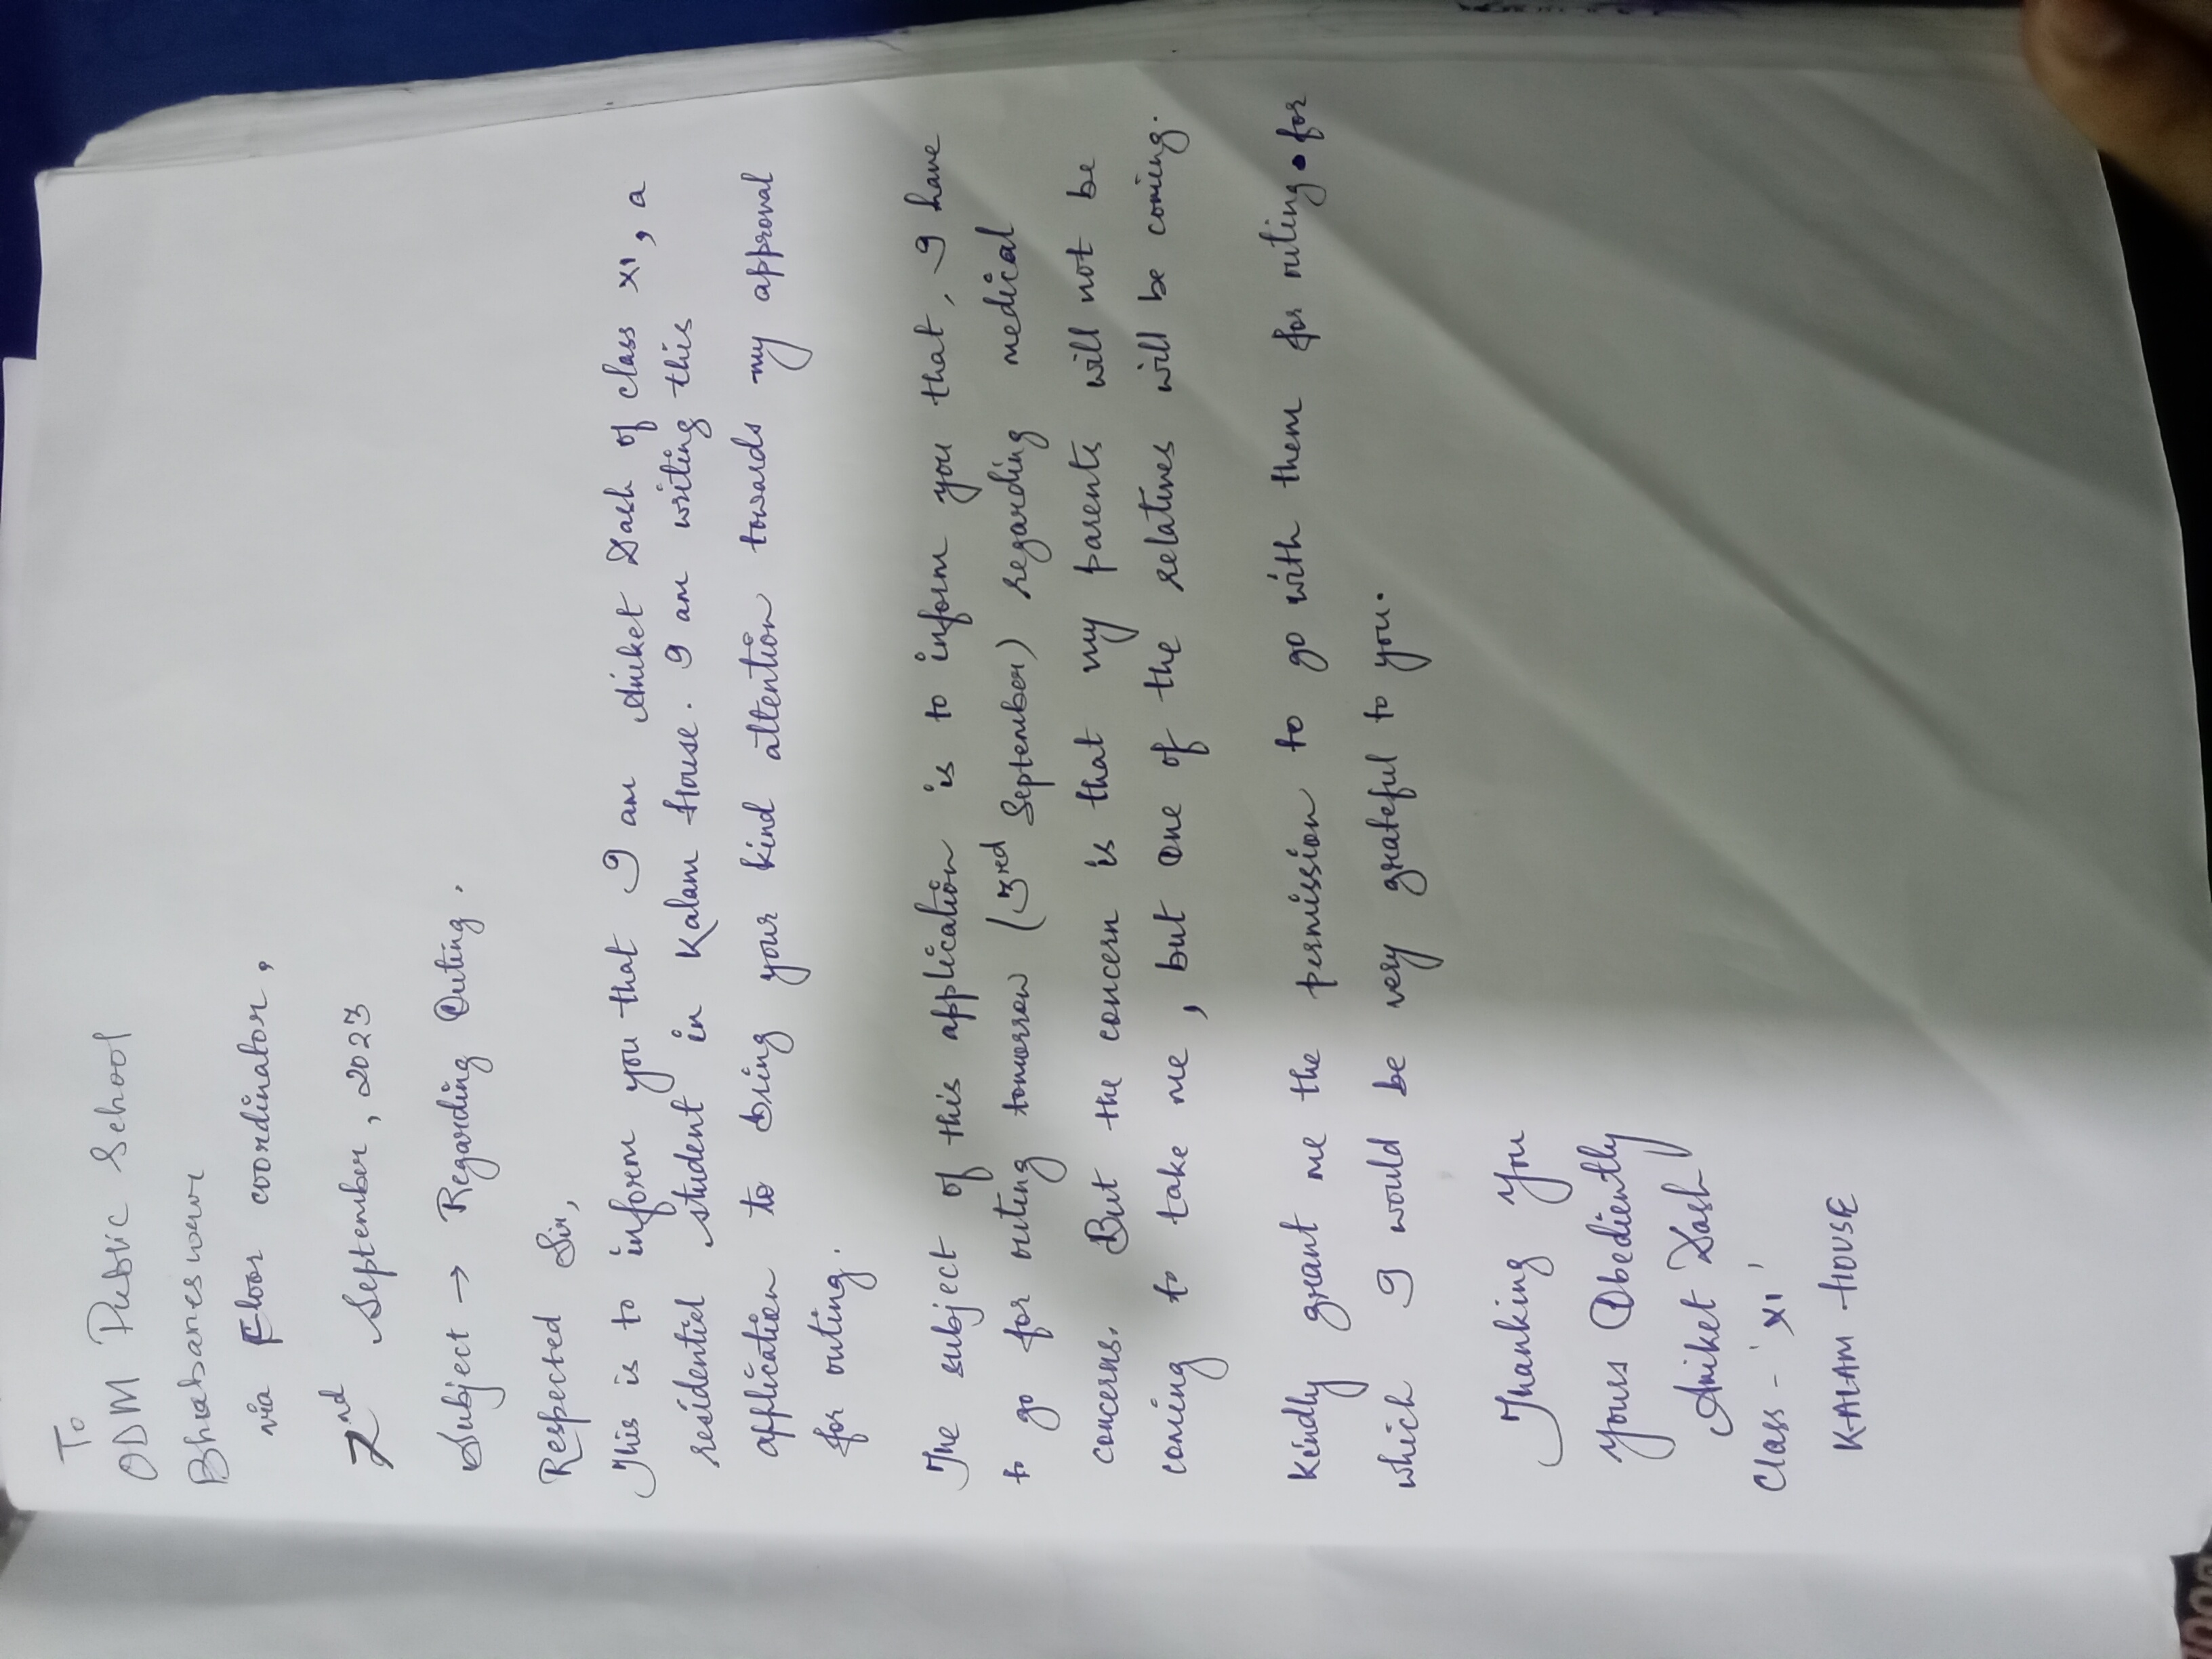 To
ODM Public School
Bhubaneswar
via Floor coordinator,
2nd September, 2023
Subject → Regarding Outing.
Respected Sir,
This is to inform you that I am Aniket Dash of class XI, a
residential student in Kalam House. I am writing this
application to bring your kind attention towards my approval
for outing.
The subject of this application is to inform you that, I have
to go for outing tomorrow (3rd September) regarding medical
concerns. But the concern is that my parents will not be
coming to take me, but One of the relatives will be coming.
Kindly grant me the permission to go with them for outing for
which I would be very grateful to you.
Thanking You
Yours Obediently
Aniket Dash
Class - 'XI'
KALAM HOUSE